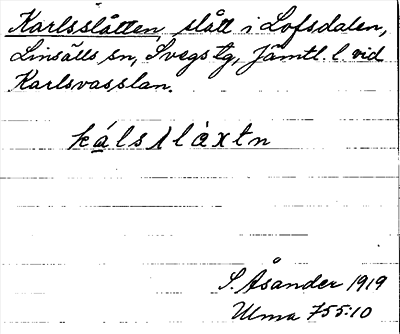 Karlsslåtten, slått i Lofsdalen,
Linsälls sn, Svegs tg, Jämtl. l. vid
Karlsvasslan.
kálsslàxtn
S. Åsander 1919
Ulma 755:10